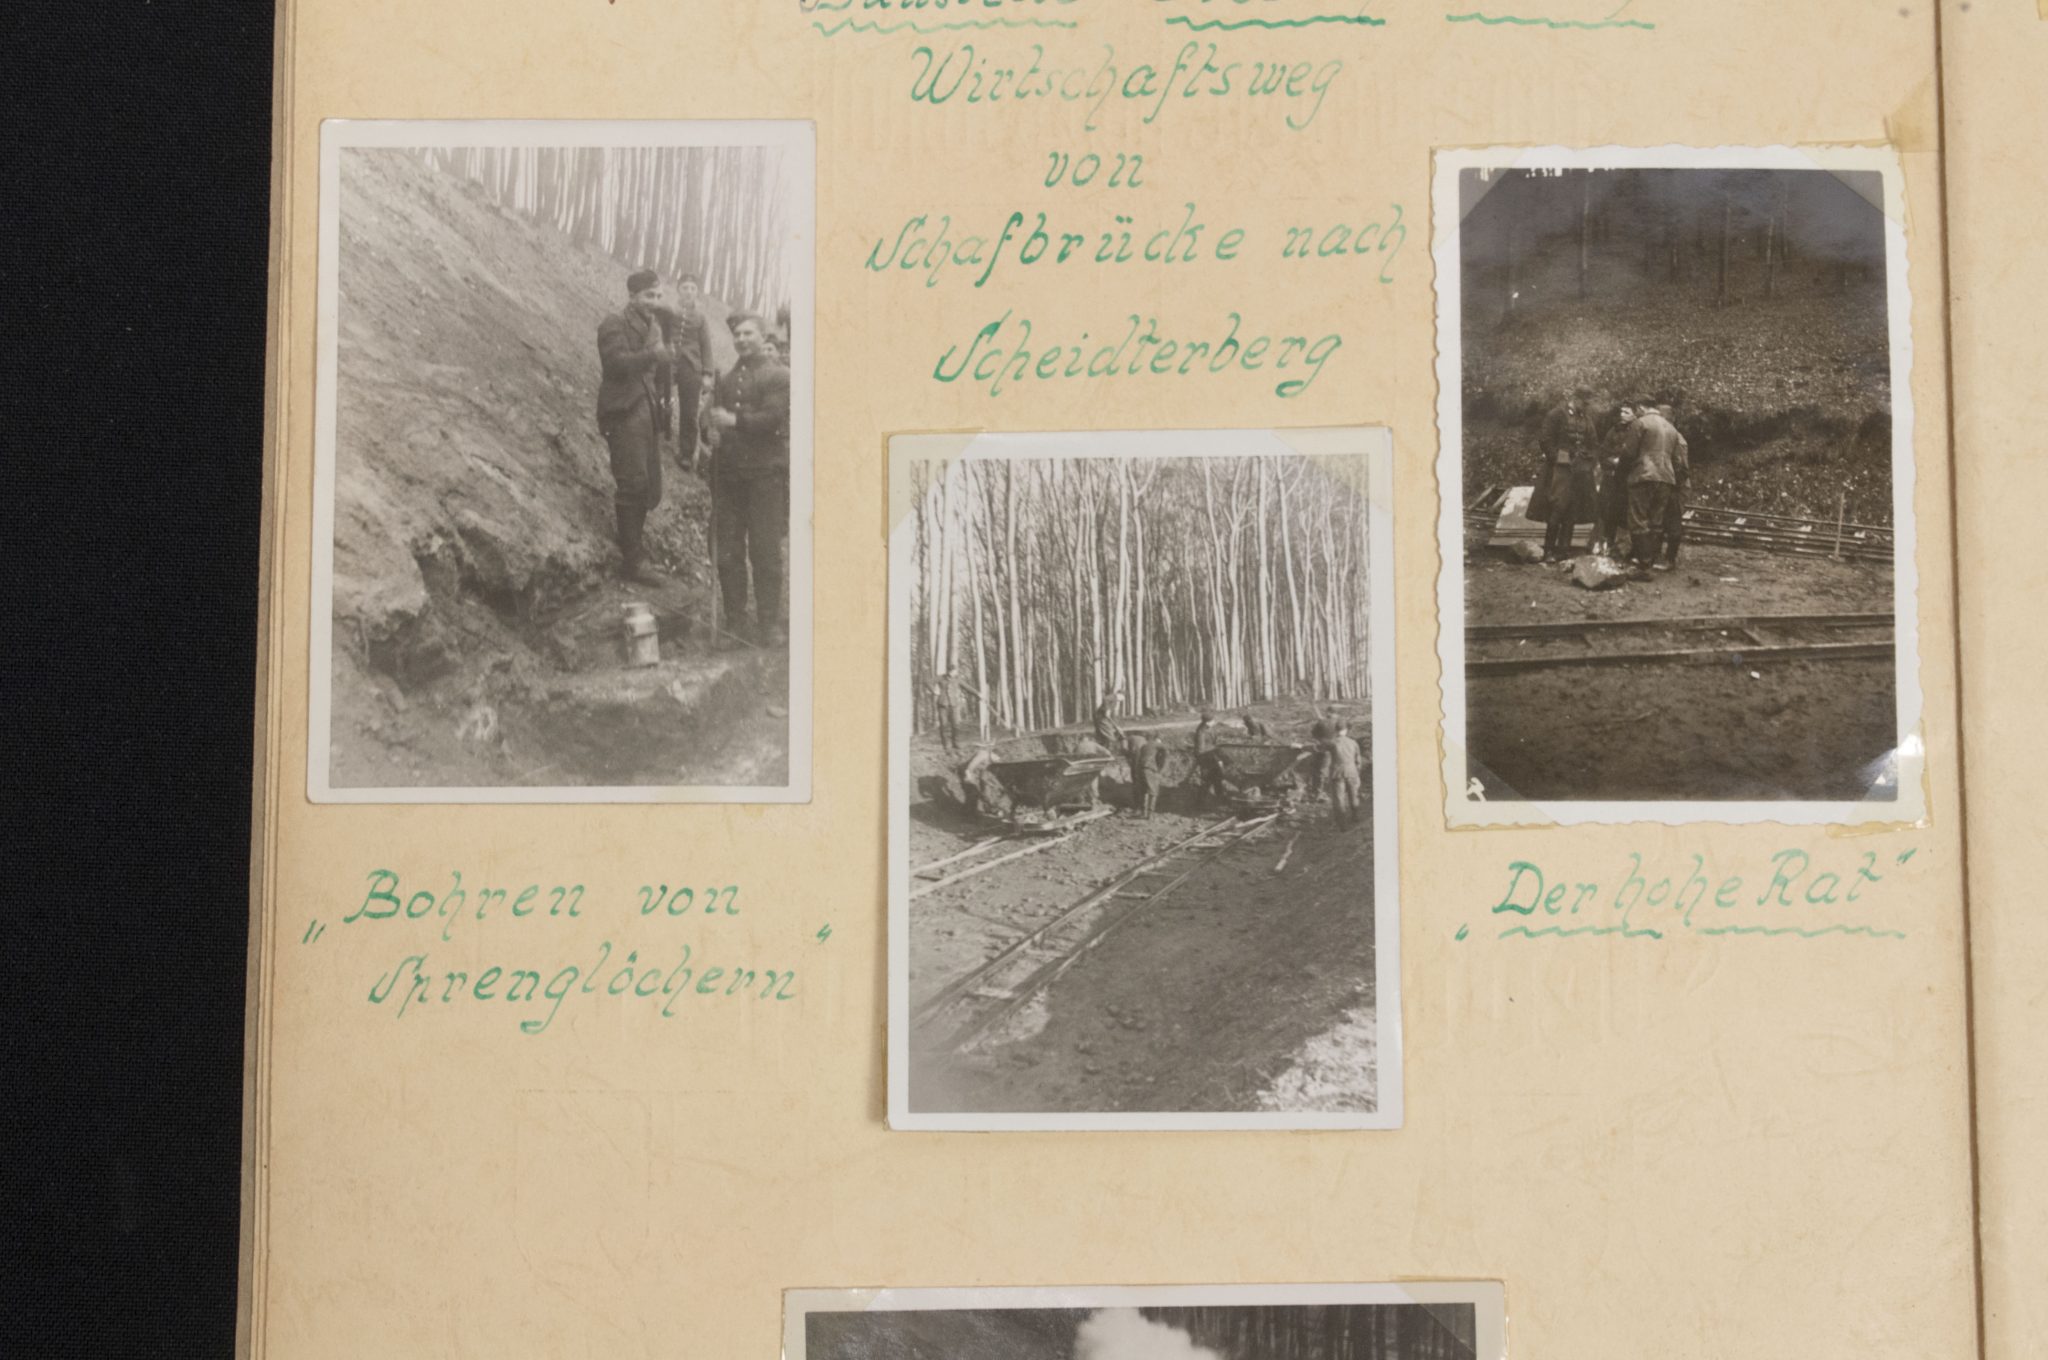 Baustelle
Wirtschaftsweg
von
Schafbrücke nach
Scheidterberg
„Bohren von
Sprenglöchern“
„Der hohe Rat“